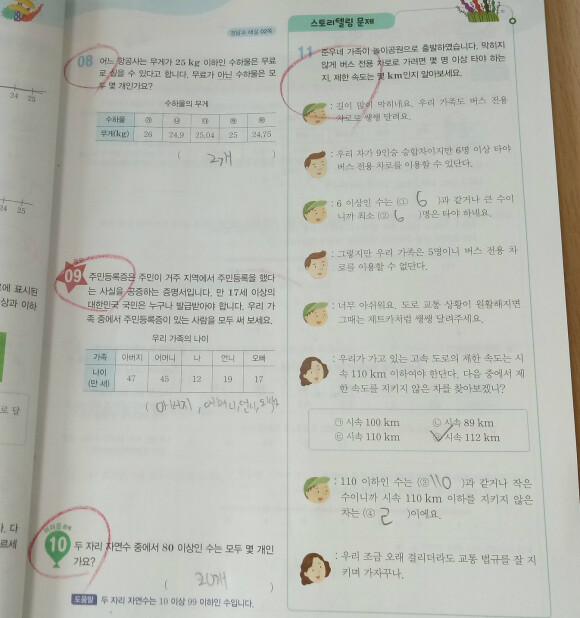 정답과 해설 02쪽
08 어느 항공사는 무게가 25 kg 이하인 수하물은 무료
로 실을 수 있다고 합니다. 무료가 아닌 수하물은 모
두 몇 개인가요?
수하물의 무게
수하물 ㉠ ㉡ ㉢ ㉣ ㉤
무게(kg) 26 24.9 25.04 25 24.75
( 2개 )
24 25
24 25
로에 표시된
상과 이하
로 답
다
르세
09 주민등록증은 주민이 거주 지역에서 주민등록을 했다
는 사실을 공증하는 증명서입니다. 만 17세 이상의
대한민국 국민은 누구나 발급받아야 합니다. 우리 가
족 중에서 주민등록증이 있는 사람을 모두 써 보세요.
우리 가족의 나이
가족 아버지 어머니 나 언니 오빠
나이
(만 세) 47 45 12 19 17
( 아버지, 어머니, 언니, 오빠 )
10 두 자리 자연수 중에서 80 이상인 수는 모두 몇 개인
가요?
( 20개 )
도움말 두 자리 자연수는 10 이상 99 이하인 수입니다.
스토리텔링 문제
11 준우네 가족이 놀이공원으로 출발하였습니다. 막히지
않게 버스 전용 차로로 가려면 몇 명 이상 타야 하는
지, 제한 속도는 몇 km인지 알아보세요.
: 길이 많이 막히네요. 우리 가족도 버스 전용
차로로 쌩쌩 달려요.
: 우리 차가 9인승 승합차이지만 6명 이상 타야
버스 전용 차로를 이용할 수 있단다.
: 6 이상인 수는 (① 6 )과 같거나 큰 수이
니까 최소 (② 6 )명은 타야 하네요.
: 그렇지만 우리 가족은 5명이니 버스 전용 차
로를 이용할 수 없단다.
: 너무 아쉬워요. 도로 교통 상황이 원활해지면
그때는 제트카처럼 쌩쌩 달려주세요.
: 우리가 가고 있는 고속 도로의 제한 속도는 시
속 110 km 이하여야 한단다. 다음 중에서 제
한 속도를 지키지 않은 차를 찾아보겠니?
㉠ 시속 100 km ㉡ 시속 89 km
㉢ 시속 110 km ㉣ 시속 112 km
: 110 이하인 수는 (③ 110 )과 같거나 작은
수이니까 시속 110 km 이하를 지키지 않은
차는 (④ ㄹ )이에요.
: 우리 조금 오래 걸리더라도 교통 법규를 잘 지
키며 가자꾸나.